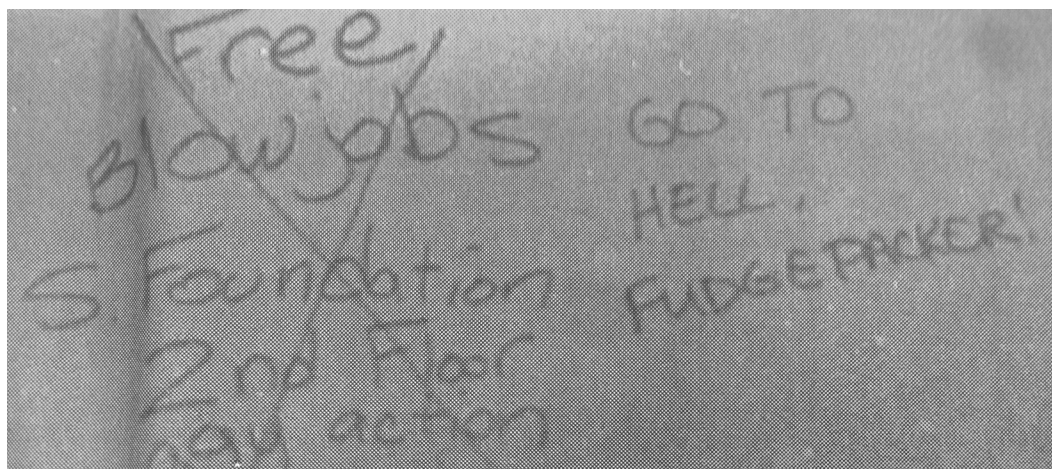 Free
Blow jobs
S. Foundation
2nd Floor
gay action
GO TO
HELL,
FUDGEPACKER!